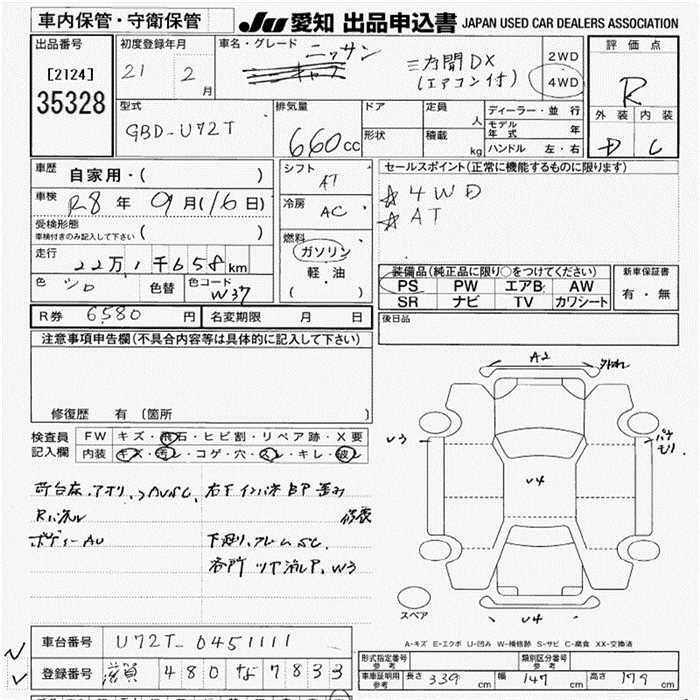 車内保管・守衛保管
JU 愛知 出品申込書 JAPAN USED CAR DEALERS ASSOCIATION
出品番号
[2124]
35328
初度登録年月
21 2月
車名・グレード
ニッサン
三方開DX
(エアコン付)
2WD
4WD
評価点
R
外装 内装
D C
型式
GBD-U72T
排気量
660cc
ドア
形状
定員 人
積載 kg
ディーラー・並行
モデル年式 年
ハンドル 左・右
車歴
自家用・( )
車検
R8年 9月(16日)
受検形態
車検付きのみ記入して下さい ( )
走行
22万1千658km
色 シロ 色替 色コード W37
シフト
AT
冷房
AC
燃料
ガソリン
軽油
( )
セールスポイント(正常に機能するものに限ります)
☆4WD
☆AT
装備品(純正品に限り○をつけてください)
PS PW エアB AW
SR ナビ TV カワシート
新車保証書
有・無
R券 6580円 名変期限 月 日
後日品
注意事項申告欄(不具合内容等は具体的に記入して下さい)
修復歴 有(箇所 )
検査員
記入欄
FW キズ・飛石・ヒビ割・リペア跡・X要
内装 キズ・汚レ・コゲ・穴・スレ・キレ・破レ
ボディーAU
A2
V3
V4
V4
スペア
A-キズ E-エクボ U-凹み W-補修跡 S-サビ C-腐食 XX-交換済
車台番号 U72T-0451111
登録番号 滋賀 480 な 7833
形式指定番号
参考
類別区分番号
参考
車庫証明用
参考
長さ 339cm 幅 147cm 高さ 179cm